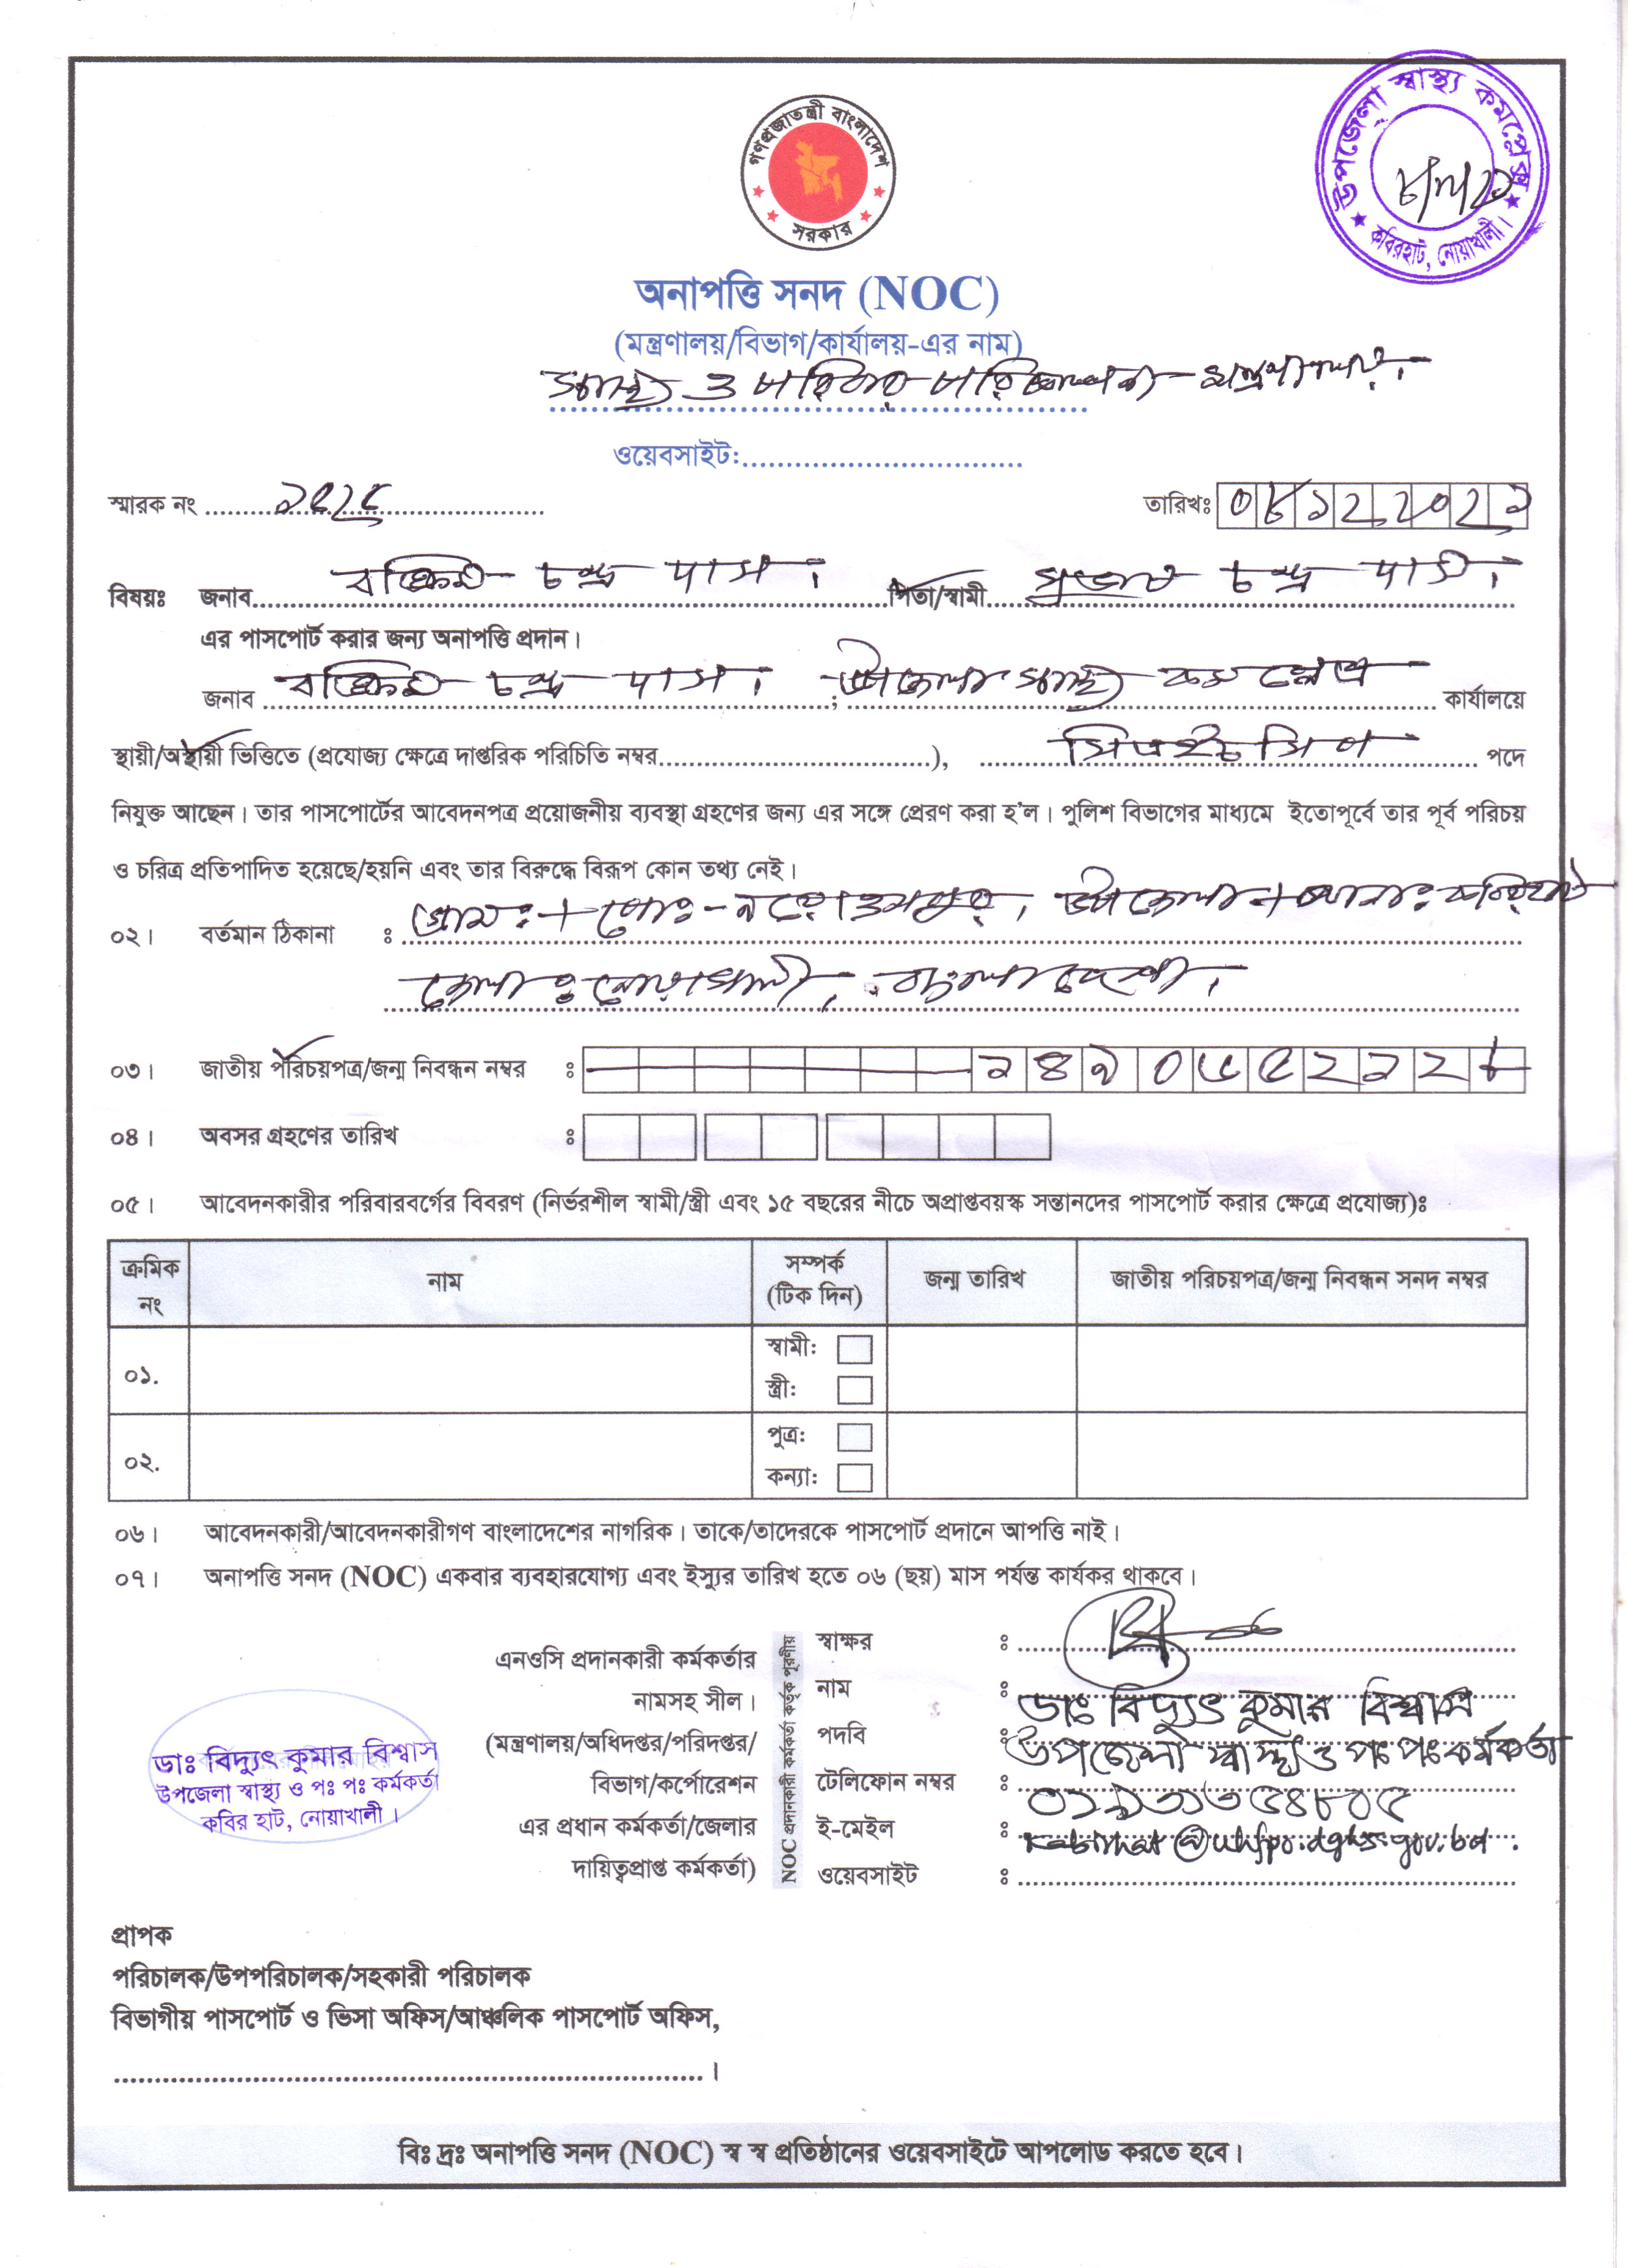 গণপ্রজাতন্ত্রী বাংলাদেশ
সরকার
উপজেলা স্বাস্থ্য কমপ্লেক্স
কবিরহাট, নোয়াখালী।
অনাপত্তি সনদ (NOC)
(মন্ত্রণালয়/বিভাগ/কার্যালয়-এর নাম)
স্বাস্থ্য ও পরিবার পরিকল্পনা মন্ত্রণালয়।
ওয়েবসাইট:
স্মারক নং
তারিখঃ ০৮১২২০২১
বিষয়ঃ জনাব বঙ্কিম চন্দ্র দাস। পিতা/স্বামী সুভাষ চন্দ্র দাস।
এর পাসপোর্ট করার জন্য অনাপত্তি প্রদান।
জনাব বঙ্কিম চন্দ্র দাস। ; উপজেলা স্বাস্থ্য কমপ্লেক্স কার্যালয়ে
স্থায়ী/অস্থায়ী ভিত্তিতে (প্রযোজ্য ক্ষেত্রে দাপ্তরিক পরিচিতি নম্বর), সিএইচসিপি পদে
নিযুক্ত আছেন। তার পাসপোর্টের আবেদনপত্র প্রয়োজনীয় ব্যবস্থা গ্রহণের জন্য এর সঙ্গে প্রেরণ করা হ'ল। পুলিশ বিভাগের মাধ্যমে ইতোপূর্বে তার পূর্ব পরিচয়
ও চরিত্র প্রতিপাদিত হয়েছে/হয়নি এবং তার বিরুদ্ধে বিরূপ কোন তথ্য নেই।
০২। বর্তমান ঠিকানা ঃ গ্রামঃ+পোঃ-নরোত্তমপুর, উপজেলা+থানাঃ কবিরহাট
জেলাঃ নোয়াখালী, বাংলাদেশ।
০৩। জাতীয় পরিচয়পত্র/জন্ম নিবন্ধন নম্বর ঃ
০৪। অবসর গ্রহণের তারিখ ঃ
০৫। আবেদনকারীর পরিবারবর্গের বিবরণ (নির্ভরশীল স্বামী/স্ত্রী এবং ১৫ বছরের নীচে অপ্রাপ্তবয়স্ক সন্তানদের পাসপোর্ট করার ক্ষেত্রে প্রযোজ্য)ঃ
ক্রমিক নং নাম সম্পর্ক (টিক দিন) জন্ম তারিখ জাতীয় পরিচয়পত্র/জন্ম নিবন্ধন সনদ নম্বর
০১. স্বামী:
স্ত্রী:
০২. পুত্র:
কন্যা:
০৬। আবেদনকারী/আবেদনকারীগণ বাংলাদেশের নাগরিক। তাকে/তাদেরকে পাসপোর্ট প্রদানে আপত্তি নাই।
০৭। অনাপত্তি সনদ (NOC) একবার ব্যবহারযোগ্য এবং ইস্যুর তারিখ হতে ০৬ (ছয়) মাস পর্যন্ত কার্যকর থাকবে।
এনওসি প্রদানকারী কর্মকর্তার
নামসহ সীল।
(মন্ত্রণালয়/অধিদপ্তর/পরিদপ্তর/
বিভাগ/কর্পোরেশন
এর প্রধান কর্মকর্তা/জেলার
দায়িত্বপ্রাপ্ত কর্মকর্তা)
NOC প্রদানকারী কর্মকর্তা কর্তৃক পূরণীয়
স্বাক্ষর ঃ
নাম ঃ ডাঃ বিদ্যুৎ কুমার বিশ্বাস
পদবি ঃ উপজেলা স্বাস্থ্য ও পঃ পঃ কর্মকর্তা
টেলিফোন নম্বর ঃ
ই-মেইল ঃ kabirhat@uhfpo.dghs.gov.bd.
ওয়েবসাইট ঃ
ডাঃ বিদ্যুৎ কুমার বিশ্বাস
উপজেলা স্বাস্থ্য ও পঃ পঃ কর্মকর্তা
কবির হাট, নোয়াখালী।
প্রাপক
পরিচালক/উপপরিচালক/সহকারী পরিচালক
বিভাগীয় পাসপোর্ট ও ভিসা অফিস/আঞ্চলিক পাসপোর্ট অফিস,
বিঃ দ্রঃ অনাপত্তি সনদ (NOC) স্ব স্ব প্রতিষ্ঠানের ওয়েবসাইটে আপলোড করতে হবে।